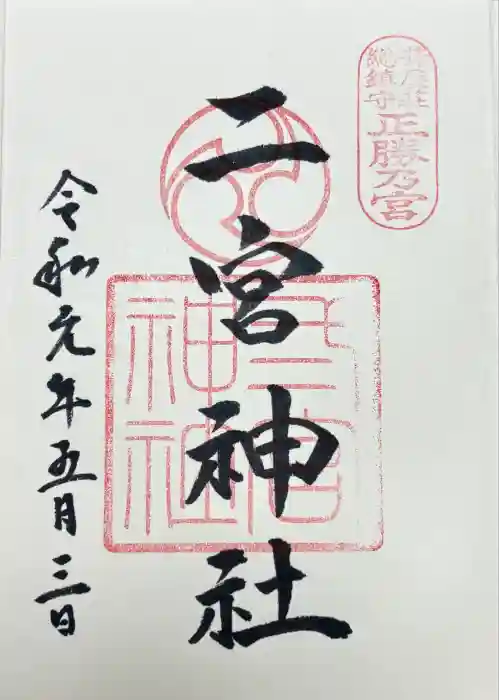 葺屋荘
總鎮守
正勝乃宮
二宮神社
二宮
神社
令和元年五月三日